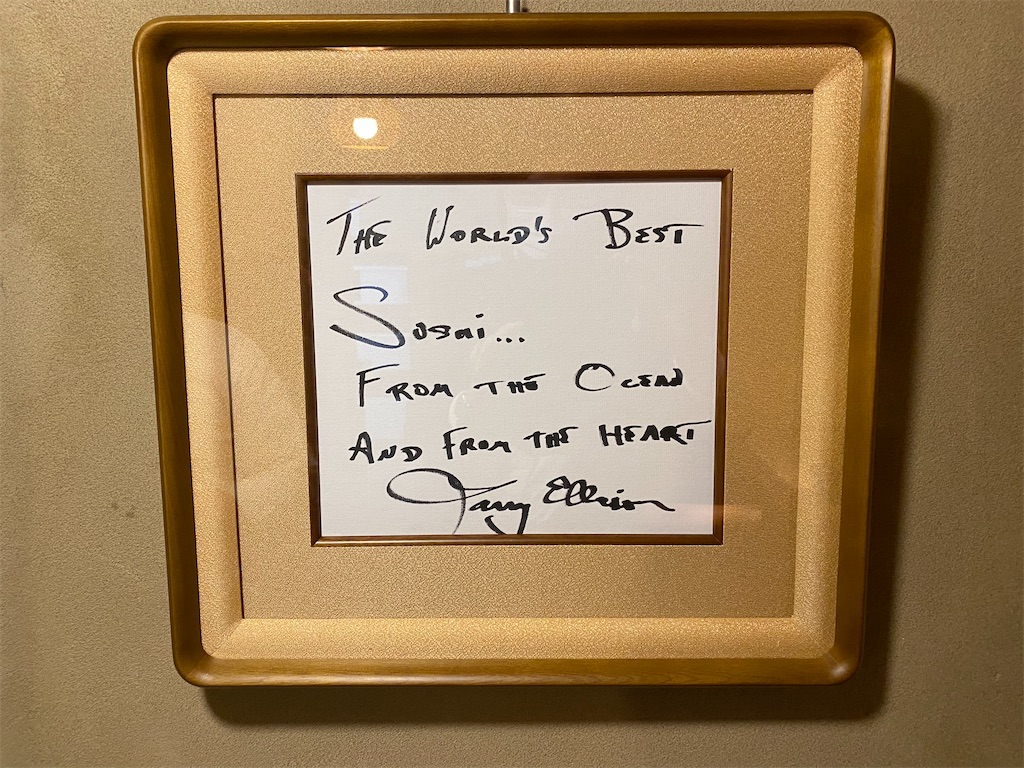 THE WORLD'S BEST
SUSHI...
FROM THE OCEAN
AND FROM THE HEART
Larry Ellison